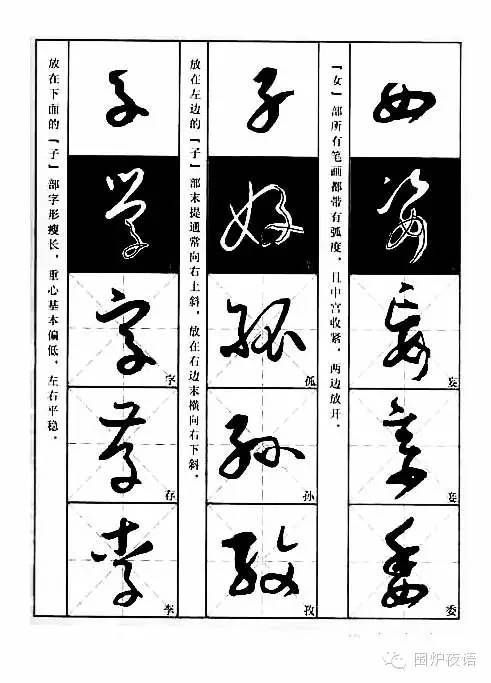 「女」部所有笔画都带有弧度，且中宫收紧，两边放开。
女
姿
妄 妄
妾 妾
委 委
放在左边的「子」部末提通常向右上斜，放在右边末横向右下斜。
子
好
孤 孤
孙 孙
孜 孜
放在下面的「子」部字形瘦长，重心基本偏低，左右平稳。
子
学
字 字
存 存
李 李
围炉夜语